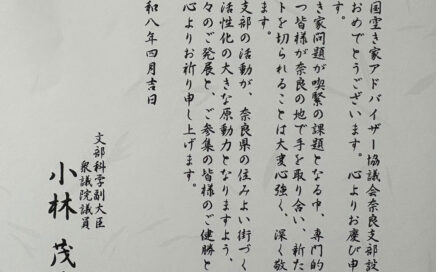 国空き家アドバイザー協議会奈良支部設
おめでとうございます。心よりお慶び申
す。
き家問題が喫緊の課題となる中、専門的
つ皆様が奈良の地で手を取り合い、新た
トを切られることは大変心強く、深く敬
ます。
支部の活動が、奈良県の住みよい街づく
活性化の大きな原動力となりますよう、
々のご発展と、ご参集の皆様のご健勝と
心よりお祈り申し上げます。
和八年四月吉日
文部科学副大臣
衆議院議員
小林茂